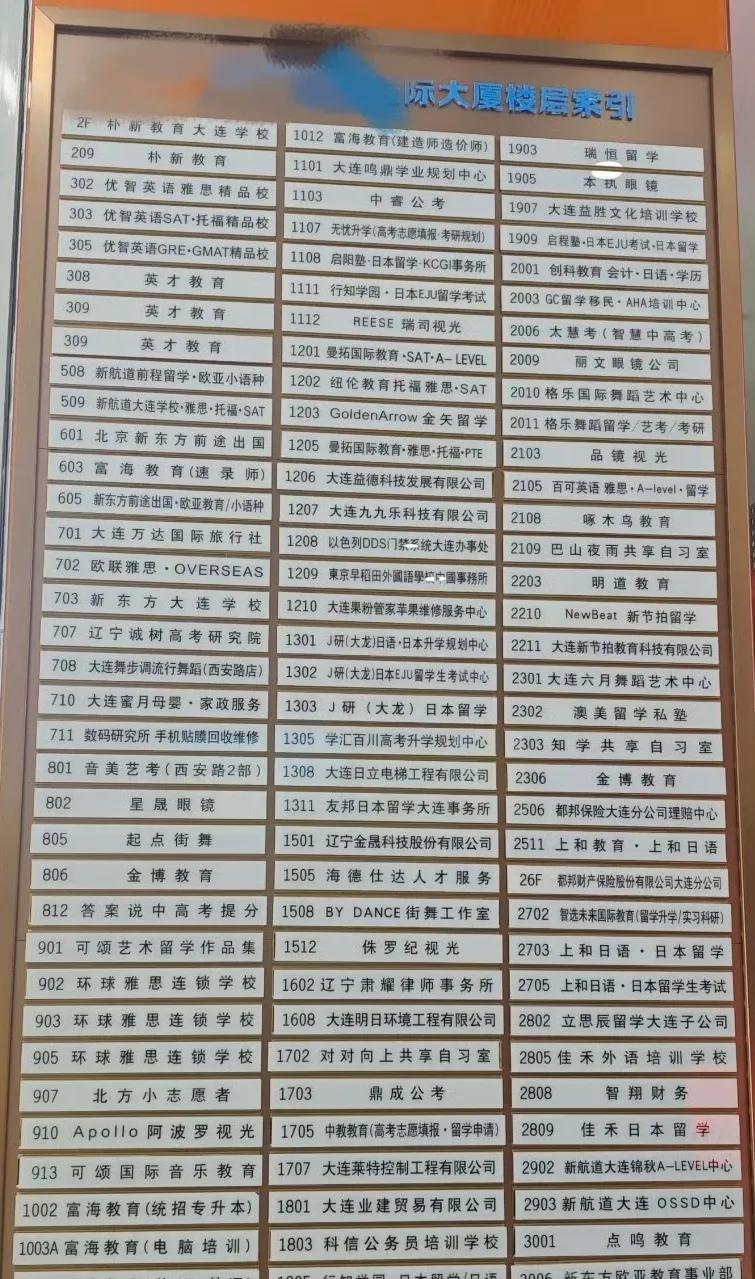 际大厦楼层索引
2F 朴新教育大连学校
209 朴新教育
302 优智英语雅思精品校
303 优智英语SAT·托福精品校
305 优智英语GRE·GMAT精品校
308 英才教育
309 英才教育
309 英才教育
508 新航道前程留学·欧亚小语种
509 新航道大连学校·雅思·托福·SAT
601 北京新东方前途出国
603 富海教育(速录师)
605 新东方前途出国·欧亚教育/小语种
701 大连万达国际旅行社
702 欧联雅思·OVERSEAS
703 新东方大连学校
707 辽宁诚树高考研究院
708 大连舞步调流行舞蹈(西安路店)
710 大连蜜月母婴·家政服务
711 数码研究所 手机贴膜回收维修
801 音美艺考(西安路2部)
802 星晟眼镜
805 起点街舞
806 金博教育
812 答案说中高考提分
901 可颂艺术留学作品集
902 环球雅思连锁学校
903 环球雅思连锁学校
905 环球雅思连锁学校
907 北方小志愿者
910 Apollo阿波罗视光
913 可颂国际音乐教育
1002 富海教育(统招专升本)
1003A 富海教育(电脑培训)
1012 富海教育(建造师造价师)
1101 大连鸣鼎学业规划中心
1103 中睿公考
1107 无忧升学(高考志愿填报·考研规划)
1108 启阳塾·日本留学·KCGI事务所
1111 行知学园·日本EJU留学考试
1112 REESE 瑞司视光
1201 曼拓国际教育·SAT·A-LEVEL
1202 纽伦教育托福雅思·SAT
1203 GoldenArrow 金矢留学
1205 曼拓国际教育·雅思·托福·PTE
1206 大连益德科技发展有限公司
1207 大连九九乐科技有限公司
1208 以色列DDS门禁系统大连办事处
1209 東京早稻田外國語學校中國事務所
1210 大连果粉管家苹果维修服务中心
1301 J研(大龙)日语·日本升学规划中心
1302 J研(大龙)日本EJU留学生考试中心
1303 J研(大龙)日本留学
1305 学汇百川高考升学规划中心
1308 大连日立电梯工程有限公司
1311 友邦日本留学大连事务所
1501 辽宁金晟科技股份有限公司
1505 海德仕达人才服务
1508 BY DANCE街舞工作室
1512 侏罗纪视光
1602 辽宁肃耀律师事务所
1608 大连明日环境工程有限公司
1702 对对向上共享自习室
1703 鼎成公考
1705 中教教育(高考志愿填报·留学申请)
1707 大连莱特控制工程有限公司
1801 大连业建贸易有限公司
1803 科信公务员培训学校
1903 瑞恒留学
1905 本执眼镜
1907 大连益胜文化培训学校
1909 启程塾·日本EJU考试·日本留学
2001 创科教育 会计·日语·学历
2003 GC留学移民·AHA培训中心
2006 太慧考(智慧中高考)
2009 丽文眼镜公司
2010 格乐国际舞蹈艺术中心
2011 格乐舞蹈留学/艺考/考研
2103 品镜视光
2105 百可英语 雅思·A-level·留学
2108 啄木鸟教育
2109 巴山夜雨共享自习室
2203 明道教育
2210 NewBeat 新节拍留学
2211 大连新节拍教育科技有限公司
2301 大连六月舞蹈艺术中心
2302 澳美留学私塾
2303 知学共享自习室
2306 金博教育
2506 都邦保险大连分公司理赔中心
2511 上和教育·上和日语
26F 都邦财产保险股份有限公司大连分公司
2702 智选未来国际教育(留学升学/实习科研)
2703 上和日语·日本留学
2705 上和日语·日本留学生考试
2802 立思辰留学大连子公司
2805 佳禾外语培训学校
2808 智翔财务
2809 佳禾日本留学
2902 新航道大连锦秋A-LEVEL中心
2903 新航道大连 OSSD中心
3001 点鸣教育